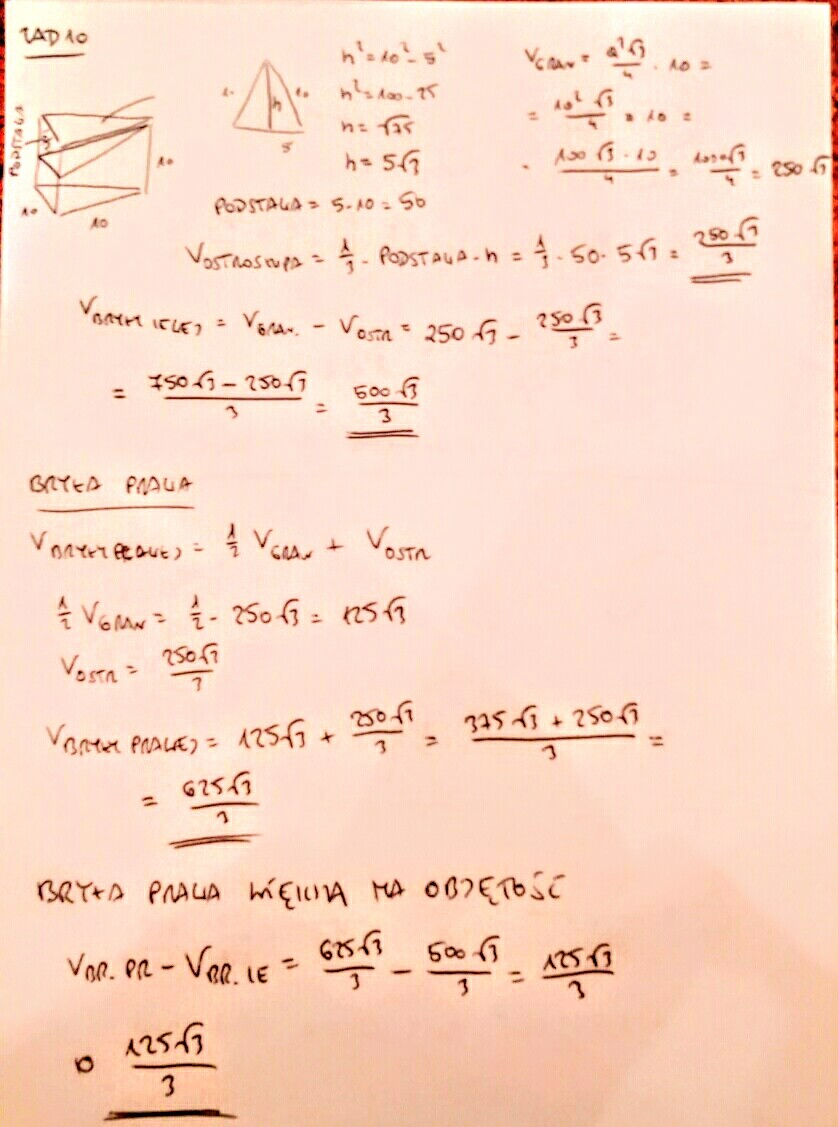 ZAD 10
h² = 10² - 5²
h² = 100 - 25
h = √75
h = 5√3
V GRAN = a²√3/4 · 10 =
= 10²√3/4 · 10 =
100√3 · 10/4 = 1000√3/4 = 250√3
PODSTAWA
10
10
10
10
h
5
PODSTAWA = 5 · 10 = 50
V OSTROSŁUPA = 1/3 · PODSTAWA · h = 1/3 · 50 · 5√3 = 250√3/3
V BRYŁY LEWEJ = V GRAN. - V OSTR = 250√3 - 250√3/3 =
= 750√3 - 250√3/3 = 500√3/3
BRYŁA PRAWA
V BRYŁY PRAWEJ = 1/2 V GRAN + V OSTR
1/2 V GRAN = 1/2 · 250√3 = 125√3
V OSTR = 250√3/3
V BRYŁY PRAWEJ = 125√3 + 250√3/3 = 375√3 + 250√3/3 =
= 625√3/3
BRYŁA PRAWA WIĘKSZA MA OBJĘTOŚĆ
V BR. PR - V BR. LE = 625√3/3 - 500√3/3 = 125√3/3
O 125√3/3